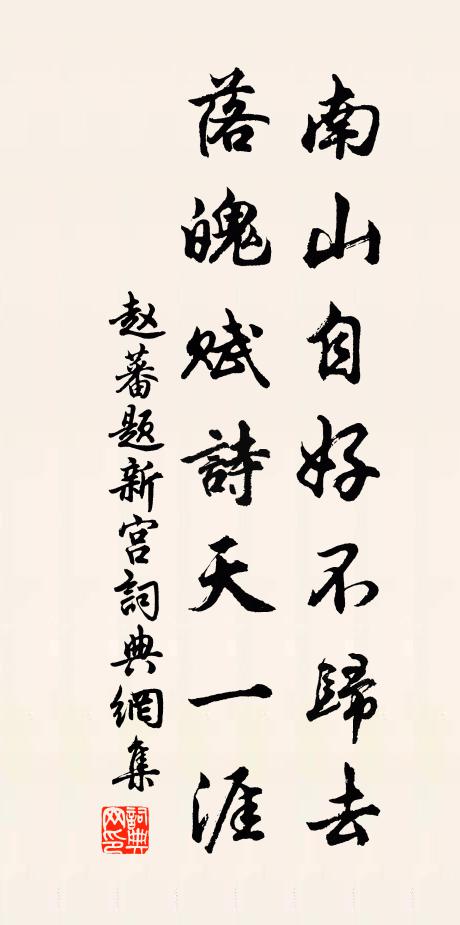 南山自好不歸去
落魄赋詩天一涯
赵蕃题新宫詞典網集
詞典网印